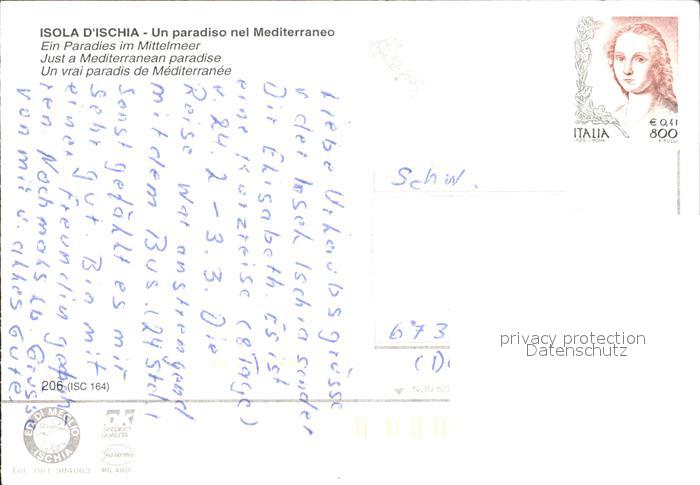 ISOLA D'ISCHIA - Un paradiso nel Mediterraneo
Ein Paradies im Mittelmeer
Just a Mediterranean paradise
Un vrai paradis de Méditerranée
Liebe Urlaubsgrüsse
v. der Insel Ischia sendet
Dir Elisabeth. Es ist
eine Kurzreise (8 Tage)
v. 24.2 - 3.3. Die
Reise war anstrengend
mit dem Bus. (24 Std.)
Sonst gefällt es mir
sehr gut. Bin mit
einer Freundin
Nochmals lb. Grüsse
von mir u. alles Gute.
€ 0,41
ITALIA 800
Schw.
673
(D
privacy protection
Datenschutz
206 (ISC 164)
NON SC
DI MEGLIO
ISCHIA
QUALITÀ
Garami
MILANO
Tel. 081 984663